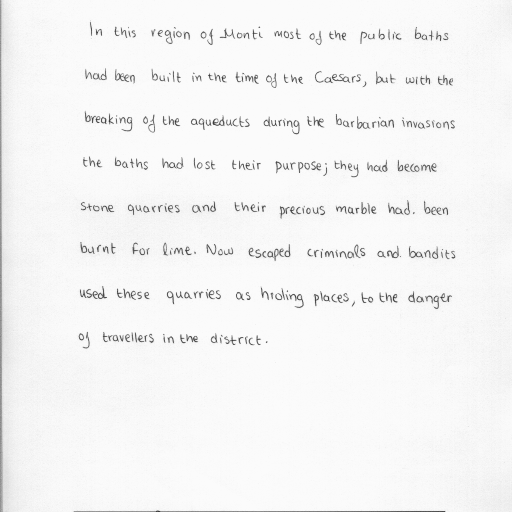 In this region of Monti most of the public baths
had been built in the time of the Caesars, but with the
breaking of the aqueducts during the barbarian invasions
the baths had lost their purpose; they had become
stone quarries and their precious marble had. been
burnt for lime. Now escaped criminals and. bandits
used these quarries as hiding places, to the danger
of travellers in the district.